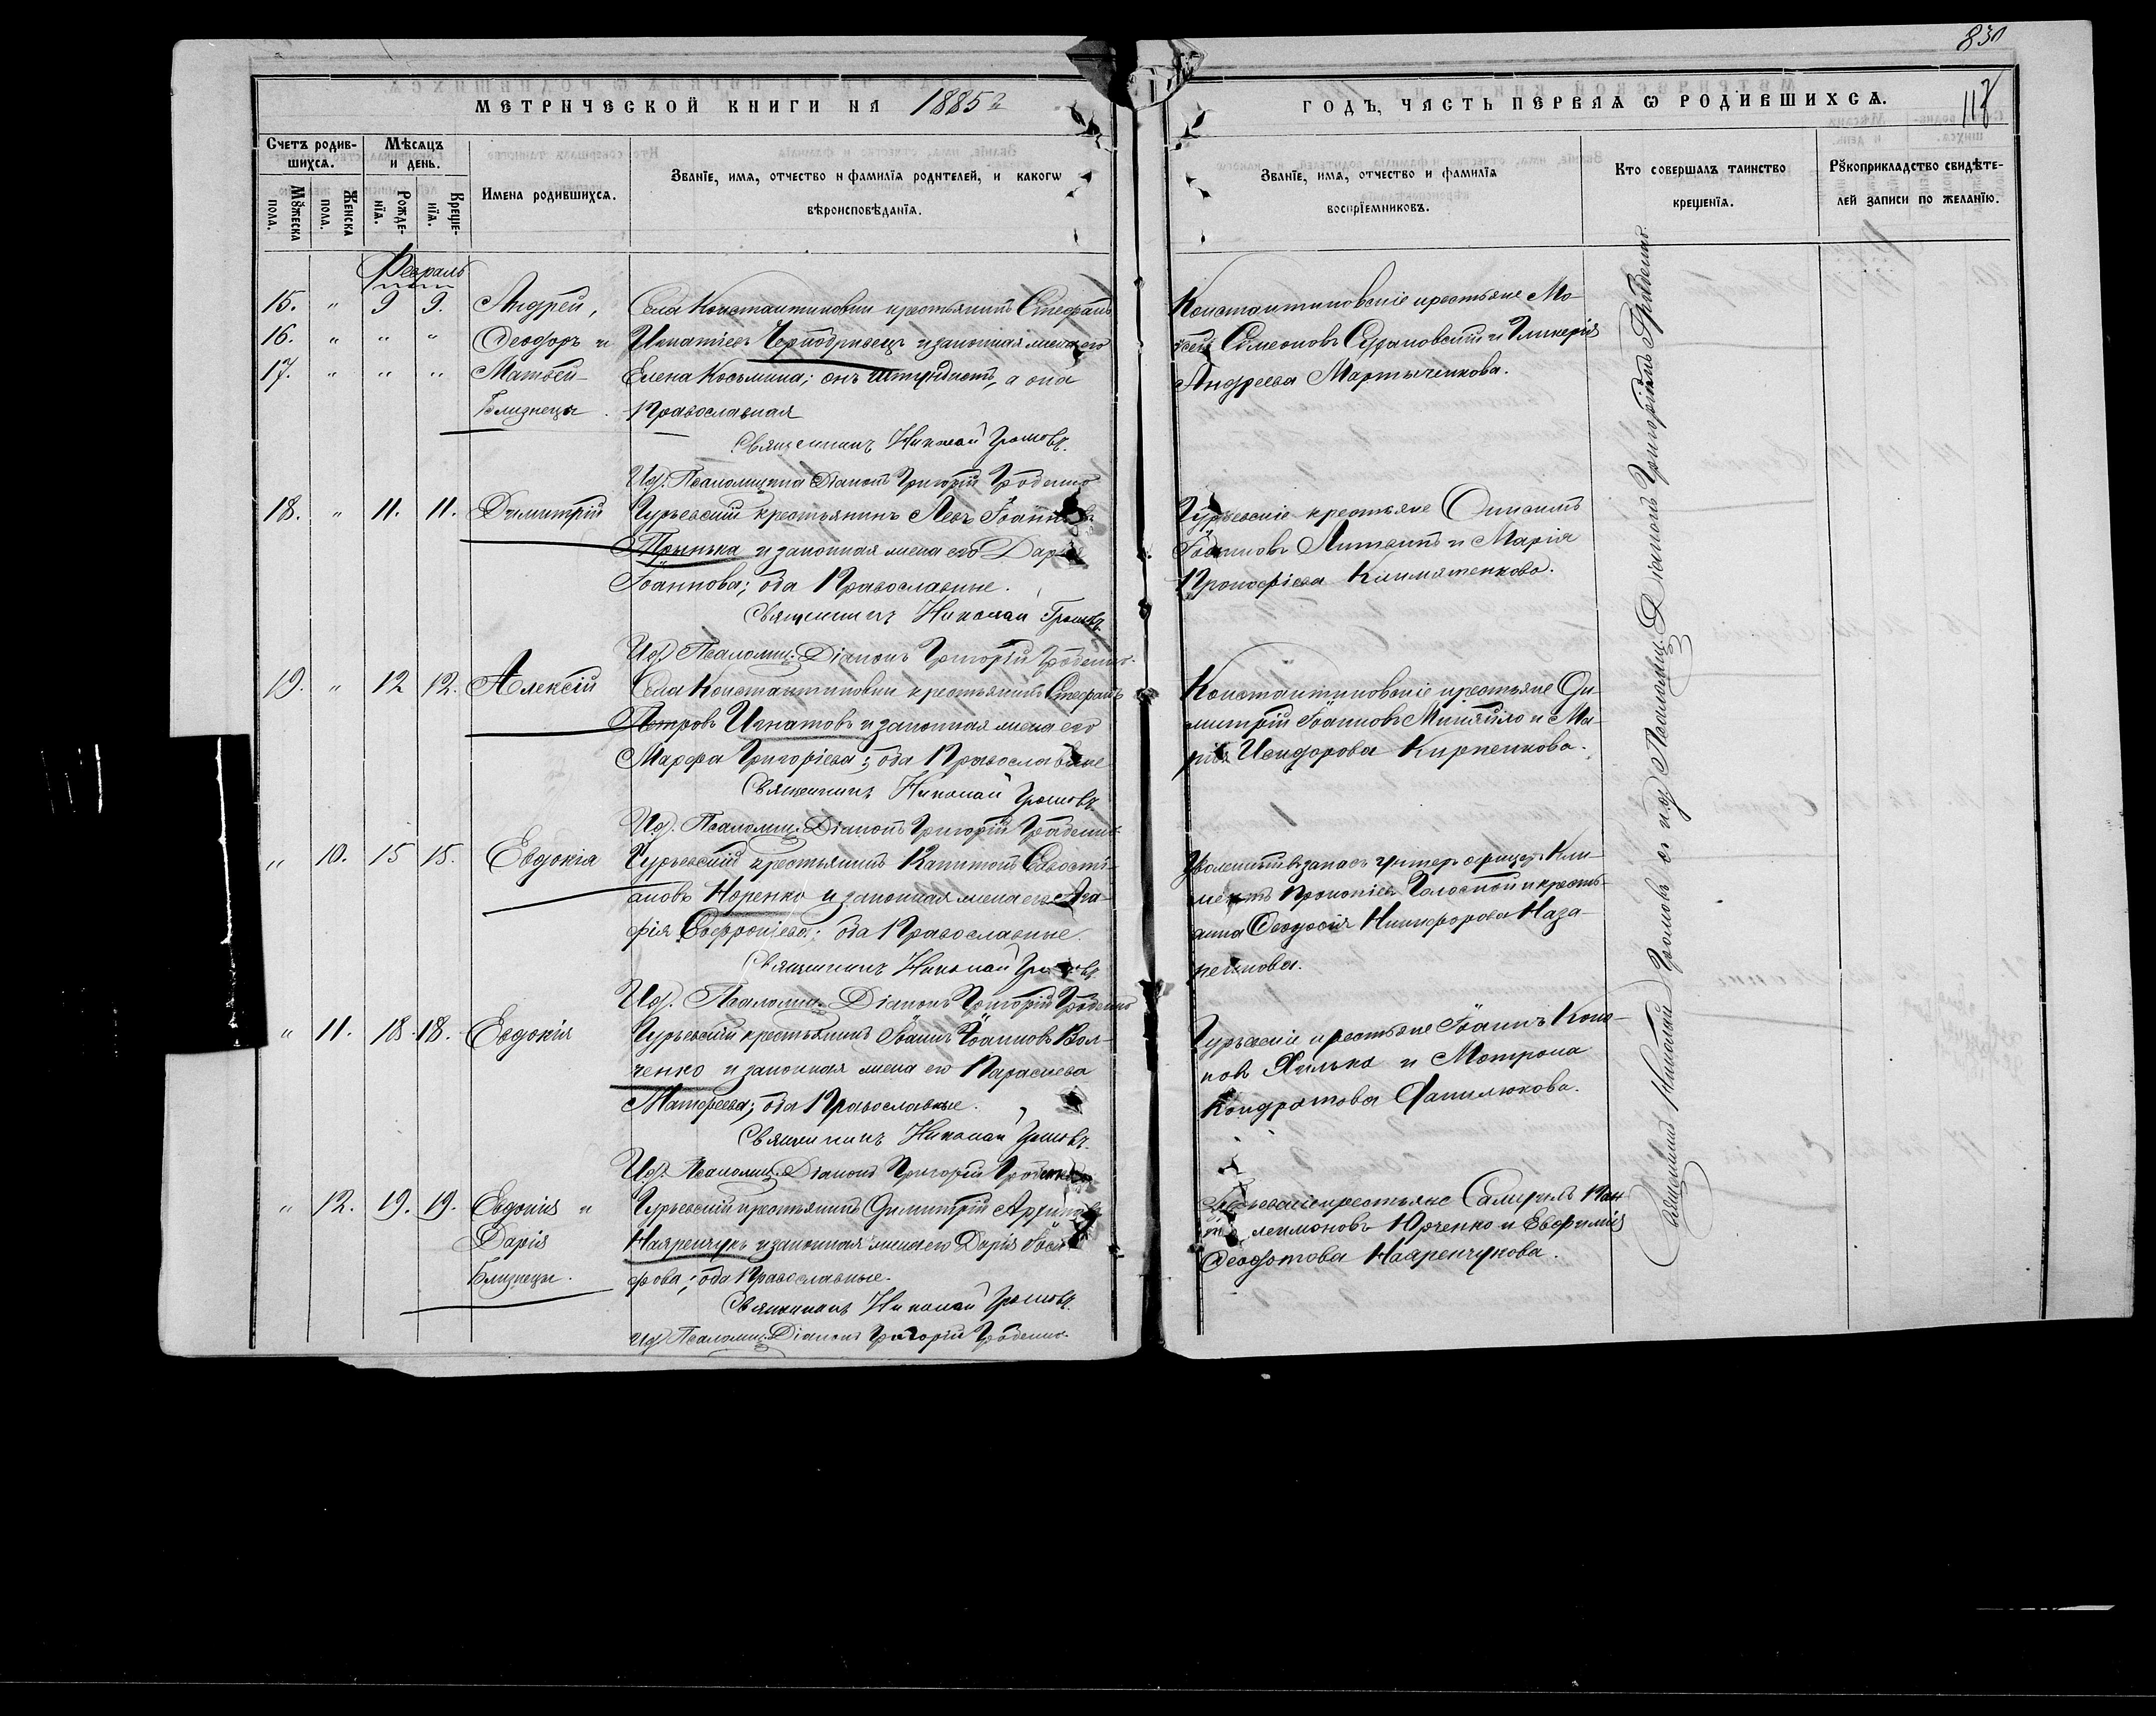 830
118
МЕТРИЧЕСКОЙ КНИГИ НА 1885 г
ГОДЪ, ЧАСТЬ ПЕРВАЯ Ѡ РОДИВШИХСѦ.
Счетъ родив-
шихсѧ.
Мѣсѧцъ
и день.
Мꙋжеска
пола.
Женска
пола.
Рожде-
нїѧ.
Креще-
нїѧ.
Имена родившихсѧ.
Званїе, имѧ, отчество и фамилїѧ родителей, и какогѡ
вѣроисповѣданїѧ.
Званїе, имѧ, отчество и фамилїѧ
воспрїемниковъ.
Кто совершалъ таинство
крещенїѧ.
Рꙋкоприкладство свидѣте-
лей записи по желанїю.
Февраль
15. " 9 9. Андрей,
16. " " " Ѳеодоръ и
17. " " " Матѳей
Близнецы.
Села Константиновки крестьянинъ Стефанъ
Игнатіевъ и законная жена его
Елена Косьмина; онъ штундистъ, а она
Православная
Священникъ Николай Громовъ.
И.д. Псаломщика Діаконъ Григорій
Константиновскіе крестьяне Мо-
сей Симеоновъ и Гликерія
Андреева Мартыченкова.
18. " 11. 11. Димитрій
Гурьевскій крестьянинъ Левъ Іоанновъ
Прынька и законная жена его Дарія
Іоаннова; оба Православные.
Священникъ Николай Громовъ.
И.д. Псаломщ. Діаконъ Григорій
Гурьевскіе крестьяне Онисимъ
Іоанновъ Литвинъ и Марія
Прокофіева Климятенкова.
19. " 12 12. Алексій
Села Константиновки крестьянинъ Стефанъ
Петровъ Игнатовъ и законная жена его
Марфа Григоріева; оба Православные
Священникъ Николай Громовъ.
И.д. Псаломщ. Діаконъ Григорій
Константиновскіе крестьяне Ди-
митрій Іоанновъ и Ма-
рія Исидорова Кирпенкова.
" 10. 15 15. Евдокія
Гурьевскій крестьянинъ Капитонъ Савасті-
ановъ Норенко и законная жена его Ага-
фія; оба Православные.
Священникъ Николай Громовъ.
И.д. Псаломщ. Діаконъ Григорій
Уволенный въ запасъ унтеръ офицеръ Кли-
ментъ Прокопіевъ Голоспой и кресть-
янка Ѳеодосія Никифорова Наза-
ренкова.
" 11. 18. 18. Евдокія
Гурьевскій крестьянинъ Іоаннъ Іоанновъ Вол-
ченко и законная жена его Параскева
Матѳеева; оба Православные.
Священникъ Николай Громовъ.
И.д. Псаломщ. Діаконъ Григорій
Гурьевскіе крестьяне Іоаннъ Коно-
новъ Хилько и Матрона
Кондратова Данилюкова.
" 12. 19. 19. Евдокія и
Дарія
Близнецы.
Гурьевскій крестьянинъ Димитрій
Назаренчукъ и законная жена его Дарія Іоси-
фова; оба Православные.
Священникъ Николай Громовъ.
И.д. Псаломщ. Діаконъ Григорій
Гурьевскіе крестьяне Самуилъ Пан-
телеимоновъ Юрченко и Евфимія
Ѳеодотова Назаренчукова.
Священникъ Николай Громовъ съ и.д. Псаломщ. Діакономъ Григоріемъ